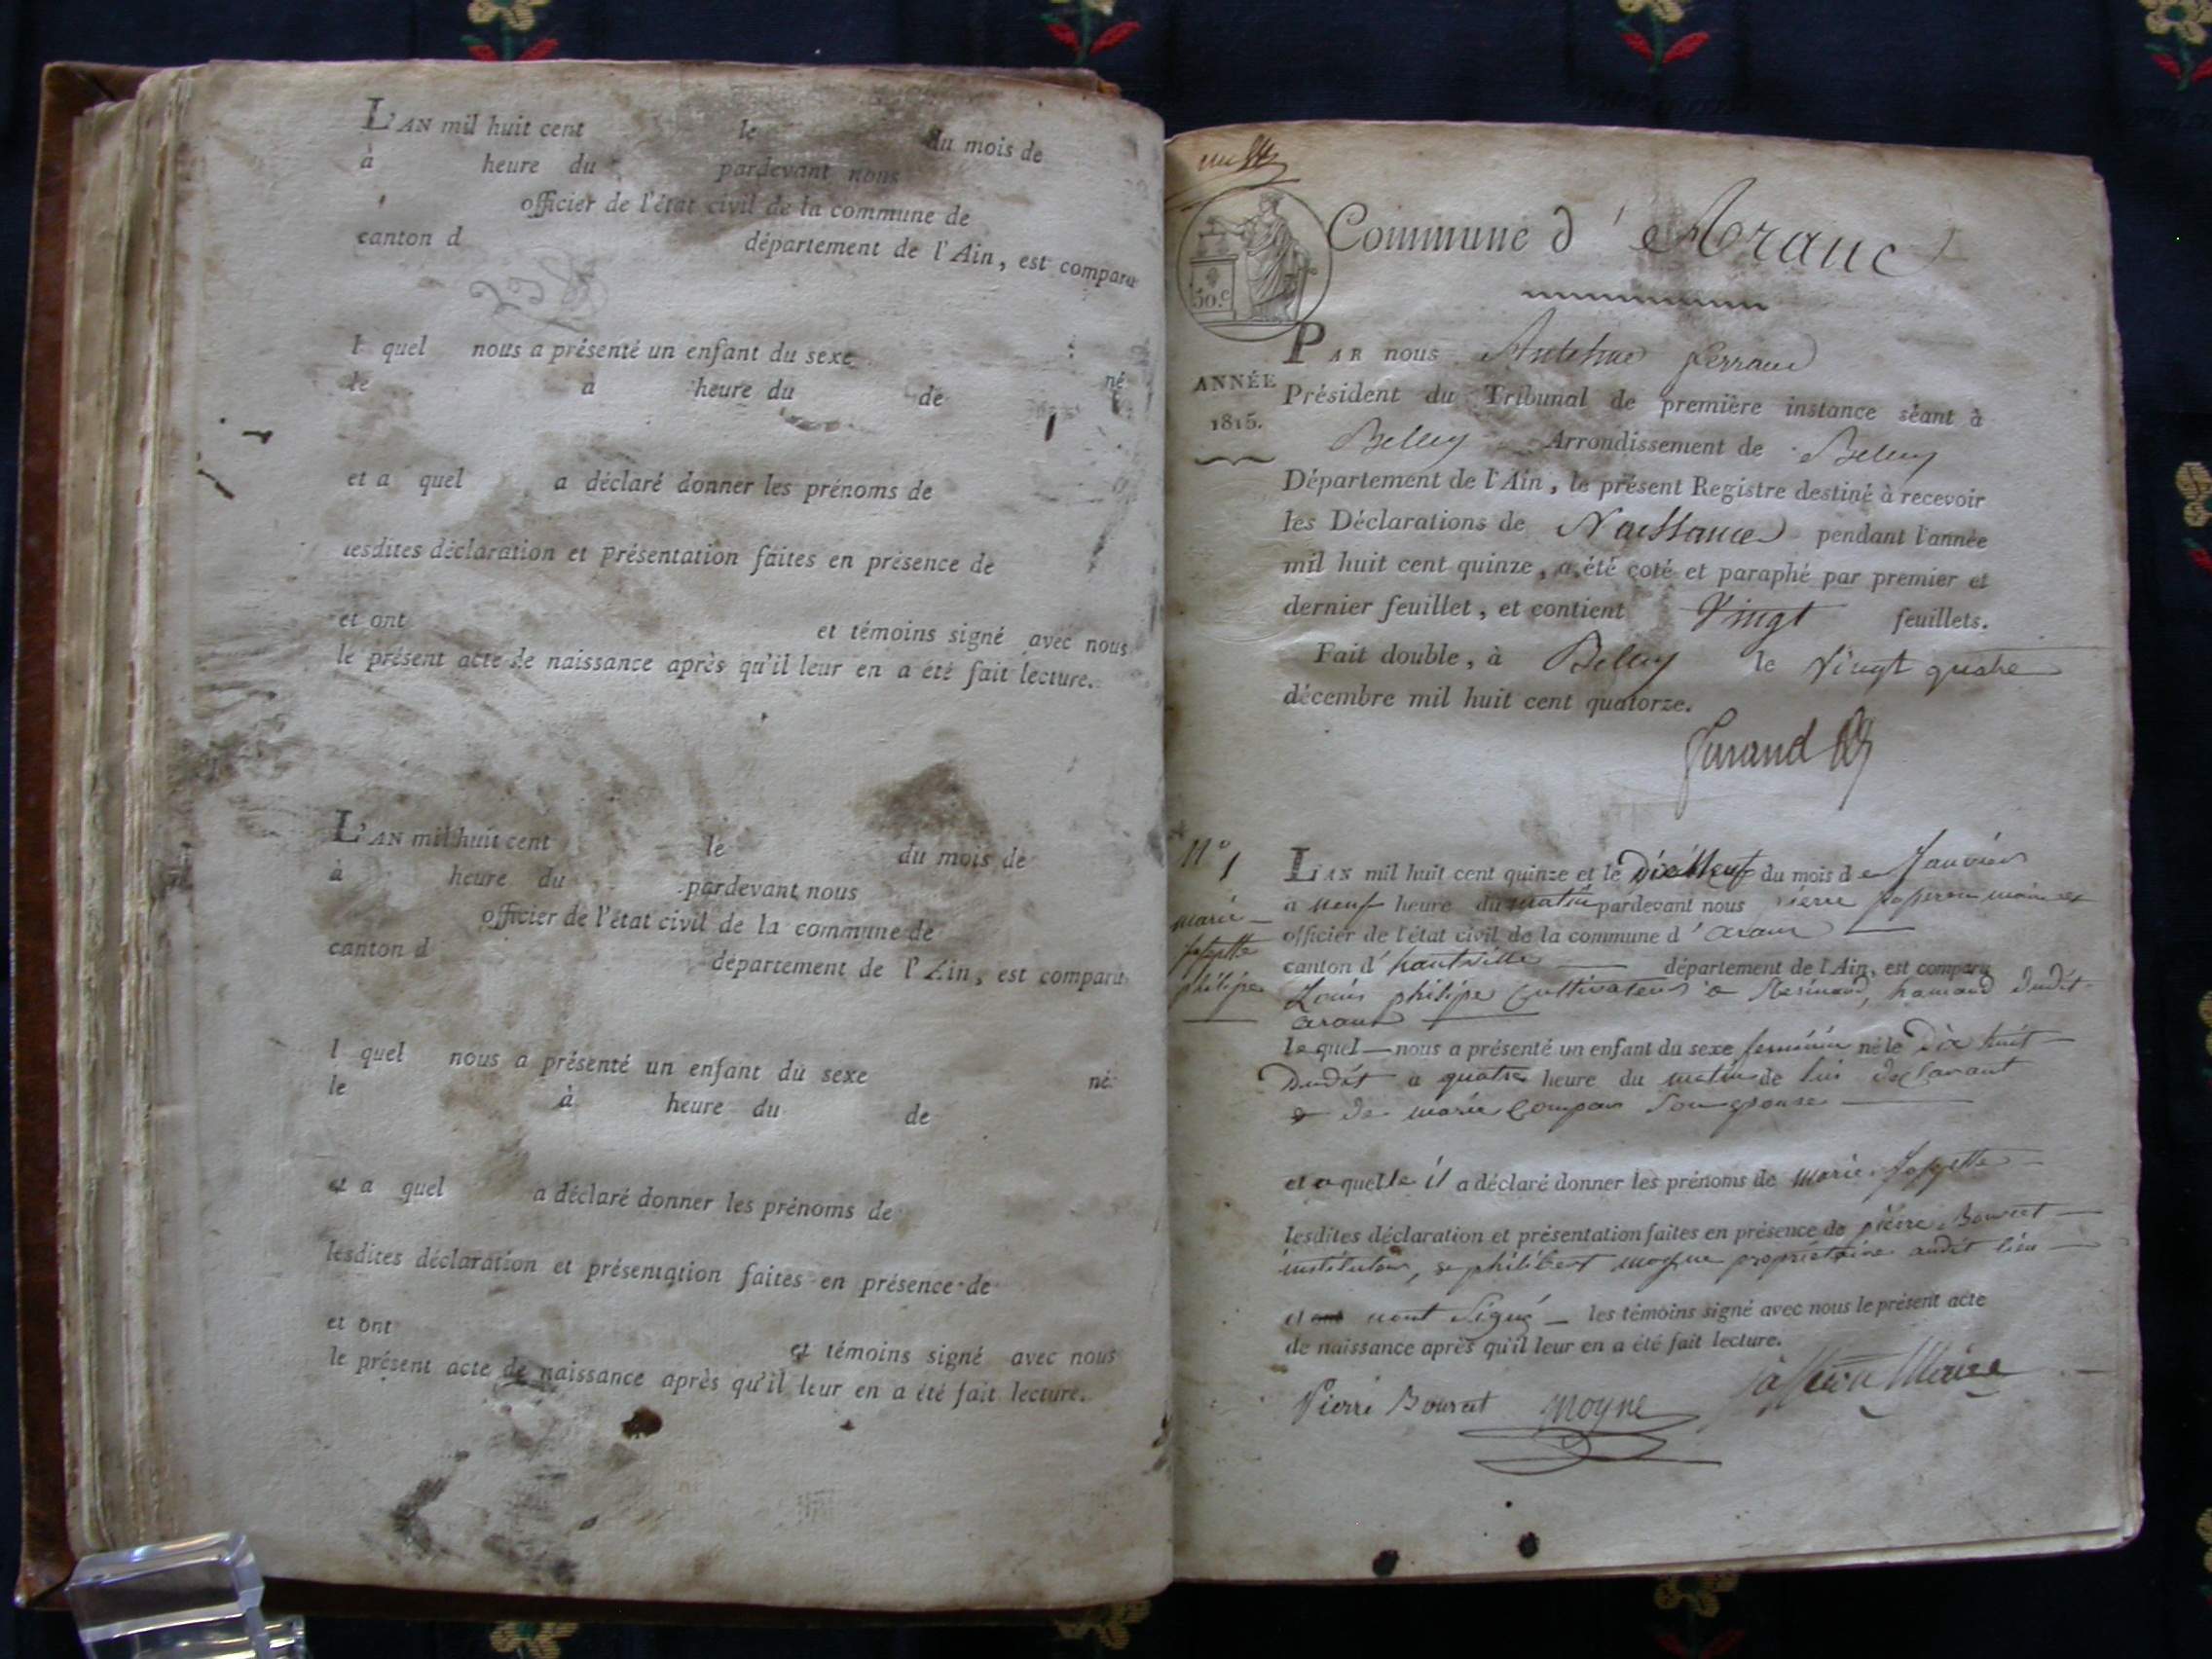 L'AN mil huit cent le du mois de
à heure du pardevant nous
officier de l'état civil de la commune de
canton d département de l'Ain, est comparu
l quel nous a présenté un enfant du sexe né
le à heure du de
et a quel a déclaré donner les prénoms de
lesdites déclaration et présentation faites en présence de
et ont et témoins signé avec nous
le présent acte de naissance après qu'il leur en a été fait lecture.
L'AN mil huit cent le du mois de
à heure du pardevant nous
officier de l'état civil de la commune de
canton d département de l'Ain, est comparu
l quel nous a présenté un enfant du sexe né
le à heure du de
et a quel a déclaré donner les prénoms de
lesdites déclaration et présentation faites en présence de
et ont et témoins signé avec nous
le présent acte de naissance après qu'il leur en a été fait lecture.
Commune d'Aranc
50.c
ANNÉE
1815.
PAR nous Anthelme ferrand
Président du Tribunal de première instance séant à
Belley Arrondissement de Belley
Département de l'Ain, le présent Registre destiné à recevoir
les Déclarations de Naissances pendant l'année
mil huit cent quinze, a été coté et paraphé par premier et
dernier feuillet, et contient Vingt feuillets.
Fait double, à Belley le Vingt quatre
décembre mil huit cent quatorze.
N° 1
marie
josepte
philipe
L'AN mil huit cent quinze et le Dixneuf du mois de Janvier
a neuf heure du matin pardevant nous pierre maire et
officier de l'état civil de la commune d'aranc
canton d'hauteville département de l'Ain, est comparu
Louis philipe Cultivateur a Resinand, hamaud dudit
aranc
lequel nous a présenté un enfant du sexe feminin né le Dix huit
Dudit a quatre heure du matin de lui declarant
& de marie Compan son epouse
et a quelle il a déclaré donner les prénoms de marie josepte
lesdites déclaration et présentation faites en présence de pierre Bourcet
instituteur, & philibert moyne propriétaire audit lieu
et ont signé les témoins signé avec nous le présent acte
de naissance après qu'il leur en a été fait lecture.
Pierre Bourcet moyne Maire